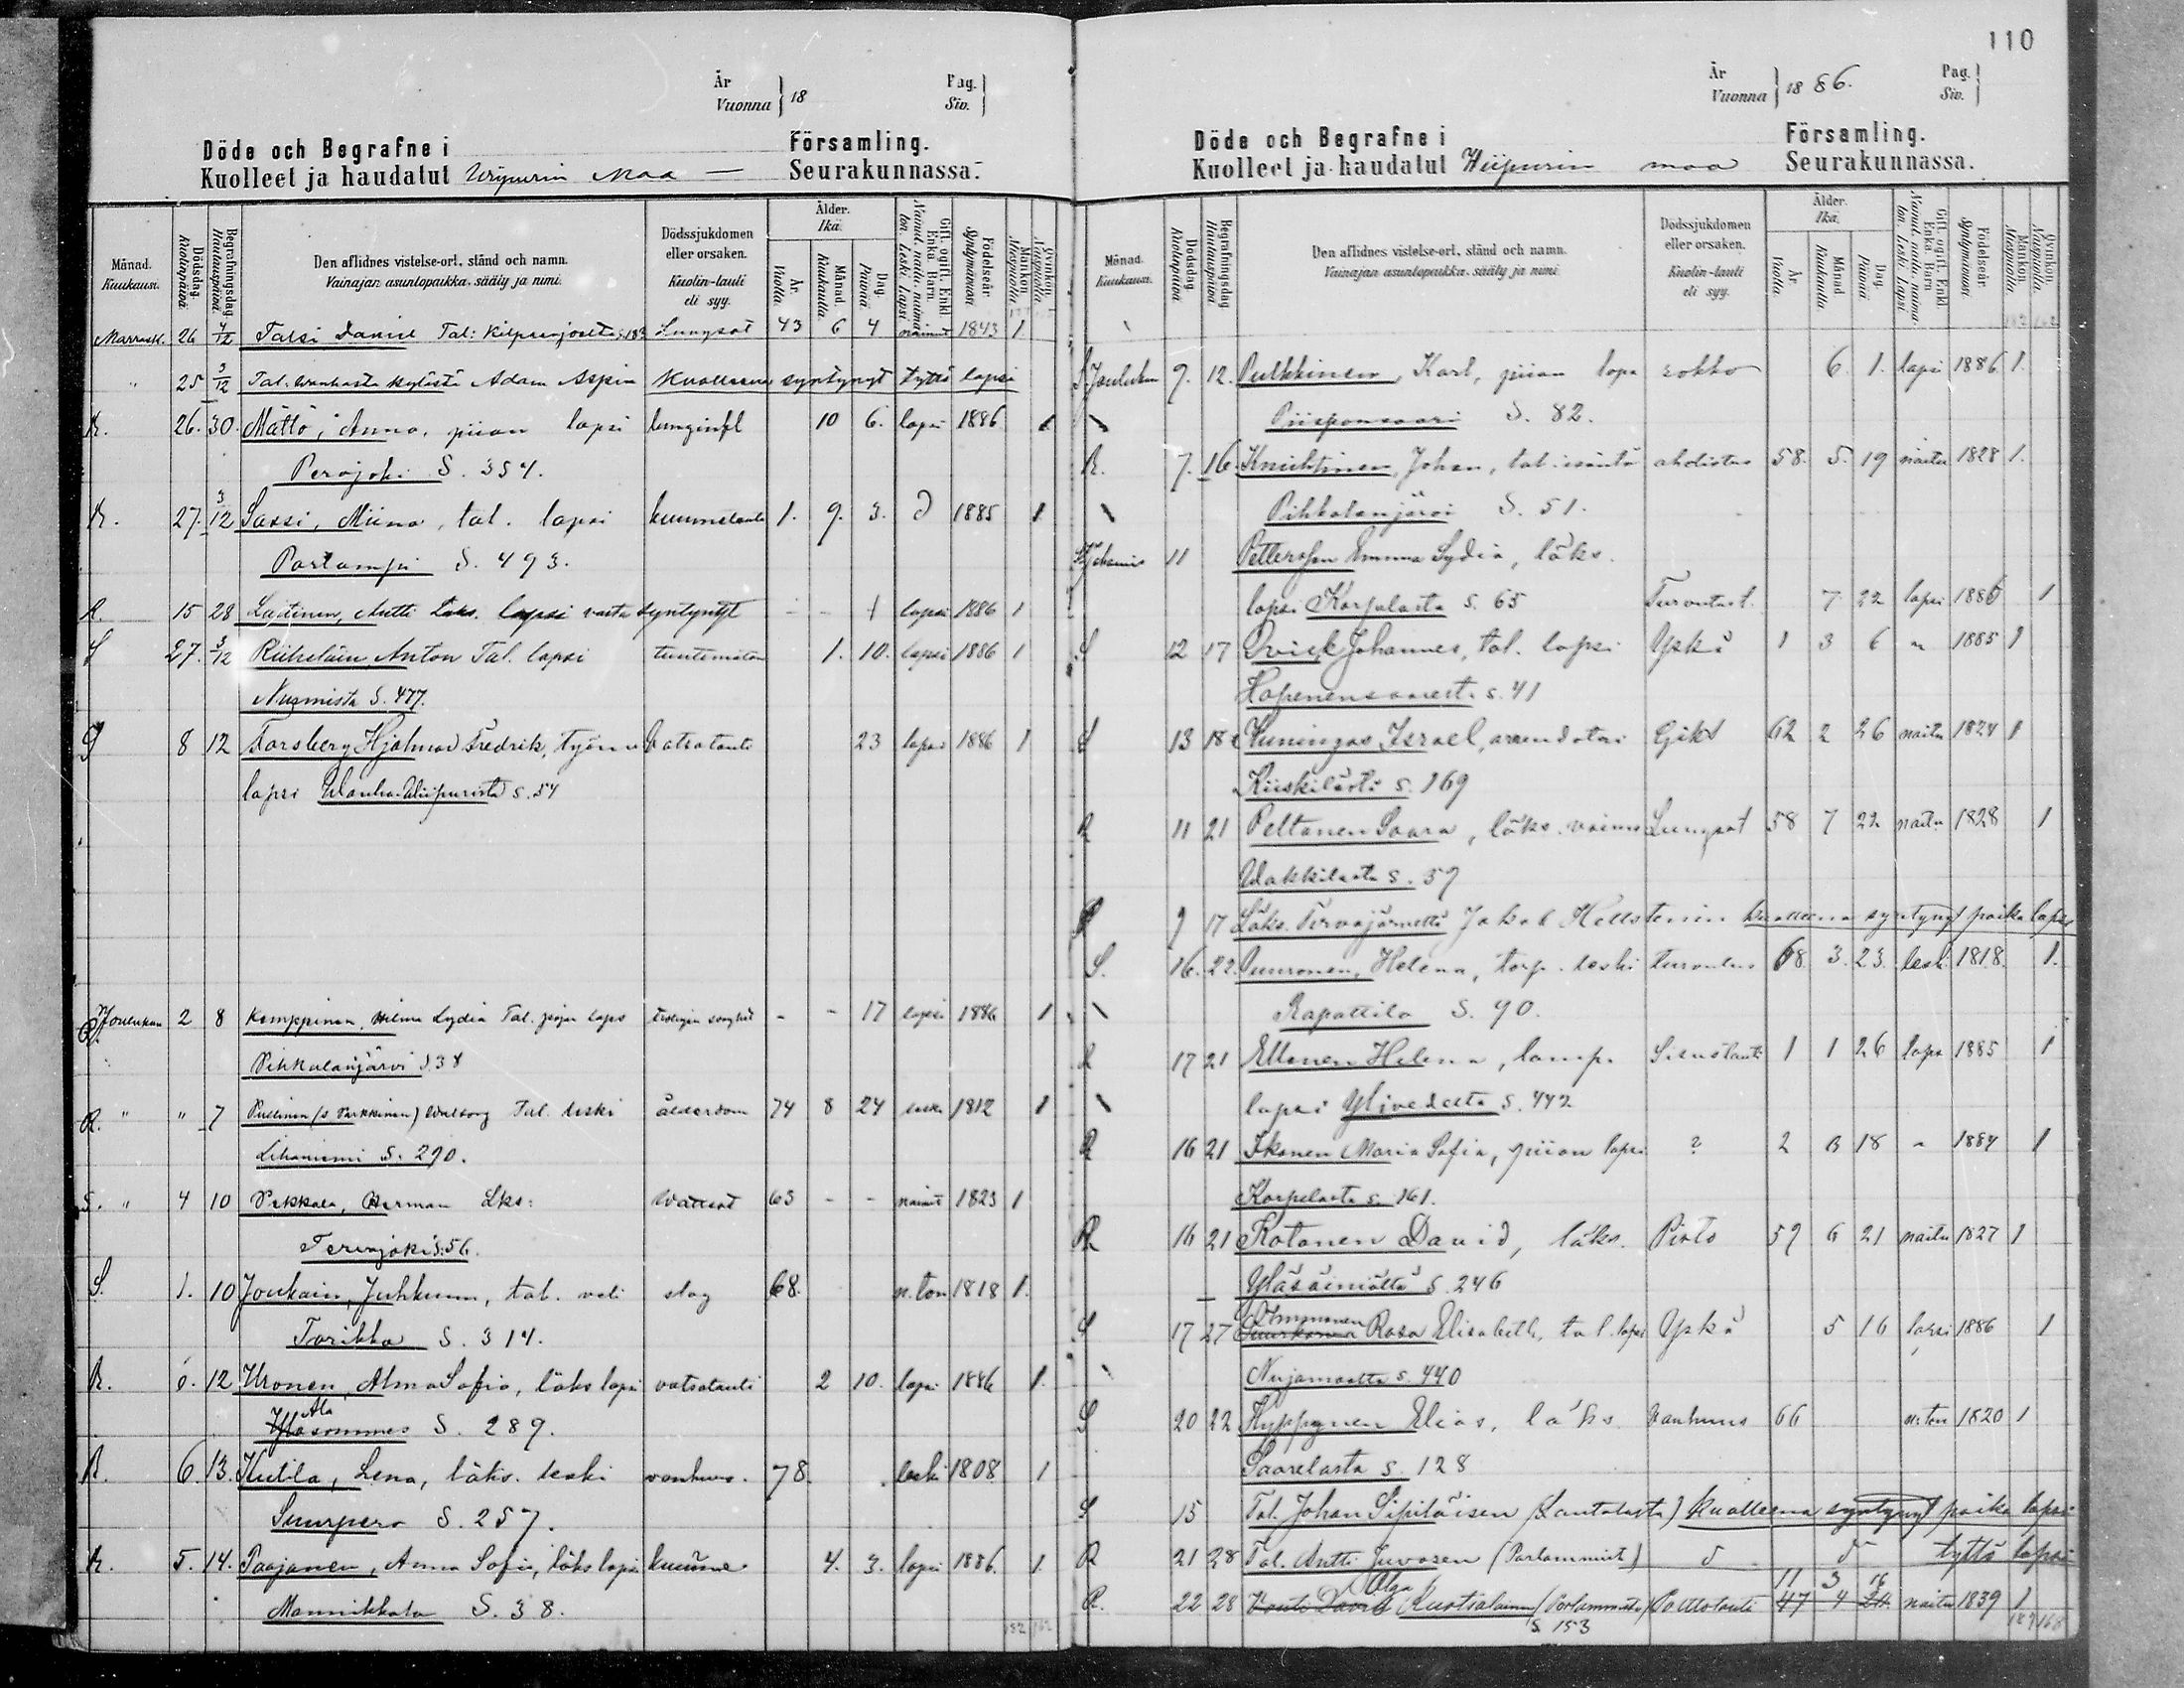 År
Vuonna } 18
Pag.
Siv.
Döde och Begrafne i Församling.
Kuolleet ja haudatut Wiipurin Maa — Seurakunnassa.
Månad. Kuukausi.
Dödsdag. Kuolinpäivä.
Begrafningsdag. Hautauspäivä.
Den aflidnes vistelse-ort, stånd och namn.
Vainajan asuntopaikka, sääty ja nimi.
Dödssjukdomen eller orsaken.
Kuolin-tauti eli syy.
Ålder. Ikä.
År. Vuotta.
Månad. Kuukautta.
Dag. Päivää.
Gift, ogift, Enkl. Enka. Barn.
Födelseår. Syntymävuosi.
Mankön. Miespuolia.
Qvinkön. Vaimopuolia.
Marrask. 26 4/12 Talsi Daniel Tal: Kilpeenjoelta S. 183 Lungsot 43 6 4 nainut 1843 1
" 25 3/12 Tal. Wanhasta kylästä Adam Aspin Kuolleena syntynyt tyttö lapsi
R. 26. 30. Mättö, Anna, piian lapsi lunginfl 10 6. lapsi 1886 1
Perojoki S. 354.
R. 27. 3/12 Sassi, Miina, tal. lapsi kuumetauti 1. 9. 3. d 1885 1
Portampi S. 493.
R. 15 28 Lajtinen, Antti Läks. lapsi vasta syntynyt - - 1 lapsi 1886 1
S 27. 3/12 Riiheläin Anton Tal. lapsi tuntematon 1. 10. lapsi 1886 1
Nurmista S. 477.
S 8 12 Forsberg Hjalmar Fredrik, työm. vatsatauti 23 lapsi 1886 1
lapsi Wanha-Wiipurista s. 54
R Joulukuu 2 8 Kemppinen, Hilma Lydia Tal. pojan laps - - 17 lapsi 1886 1
Pihkalanjärvi S 38
R. " " 7 Pullinen (s Parkkinen) Walborg Tal. leski ålderdom 74 8 24 leski 1812 1
Lihaniemi S. 290.
S. " 4 10 Pekkala, Herman Lks: Wattsot 63 - - nainut 1823 1
Tervajoki S: 56.
S. 1. 10 Joukain, Juhkuum, tal. veli slag 68. n. ton 1818 1.
Tarikka S. 314.
R. 6. 12 Uronen, Alma Sofia, läks lapsi vatsatauti 2 10. lapsi 1886 1.
Ala
Yläsommes S. 289.
R. 6. 13. Hutila, Lena, läks. leski vanhuus. 78. leski 1808 1
Suurpero S. 257.
R. 5. 14. Paajanen, Anna Sofia, läks lapsi kuume 4. 3. lapsi 1886. 1.
Mannikkala S. 38.
182 162
110
År
Vuonna } 1886.
Pag.
Siv.
Döde och Begrafne i Församling.
Kuolleet ja haudatut Wiipurin maa Seurakunnassa.
Månad. Kuukausi.
Dödsdag. Kuolinpäivä.
Begrafningsdag. Hautauspäivä.
Den aflidnes vistelse-ort, stånd och namn.
Vainajan asuntopaikka, sääty ja nimi.
Dödssjukdomen eller orsaken.
Kuolin-tauti eli syy.
Ålder. Ikä.
År. Vuotta.
Månad. Kuukautta.
Dag. Päivää.
Gift, ogift, Enkl. Enka. Barn.
Födelseår. Syntymävuosi.
Mankön. Miespuolia.
Qvinkön. Vaimopuolia.
182 162
S Joulukuu 9. 12. Pulkkinen, Karl, piian lapsi rokko 6. 1. lapsi 1886 1.
Piisponsaari S. 82.
R. 7. 16. Knihtinen, Johan, tal. isäntä ahdistus 58. 5. 19 naitu 1828 1.
Pihkalanjärvi S. 51.
St Johannis 11 Petterssen Emma Lydia, läks.
lapsi Karpelasta s. 65 Turvotust. 7 22 lapsi 1886 1
S 12 17 Qvick Johannes, tal. lapsi Yskä 1 3 6 " 1885 1
Hapenensaaresta s. 41
S 13 18 Kuningas Israel, arendatori Gikt 62 2 26 naitu 1824 1
Kiiskilästä s. 169
R 11 21 Peltonen Saara, läks. vaimo Lungsot 58 7 22 naitu 1828 1
Wakkilasta s. 59
9 17 Läks. Tervajärveltä Jakob Hellstenin kuolleena syntynyt poika lapsi
S. 16. 22. Puuronen, Helena, torp. leski turvotus 68 3. 23. leski 1818. 1.
Rapattila S. 90.
R 17 21 Ellonen Helena, lamp. Sisustauti 1 1 26 lapsi 1885 1
lapsi Ylivedelta s. 442
R 16 21 Ikonen Maria Sofia, piian lapsi ? 2 8 18 " 1884 1
Karpelasta s. 161.
R 16 21 Rotonen David, läks. Pisto 59 6 21 naitu 1827 1
Yläsäiniöltä S. 246
S 17 27 Immonen Rosa Elisabeth, tal. lapsi Yskä 5 16 lapsi 1886 1
Nuijamaalta s. 440
S 20 22 Kyppynen Elias, läks Vanhuus 66 n: ton 1820 1
Saarelasta s. 128
S 15 Tal. Johan Sipiläisen (Kantalasta) kuolleena syntynyt poika lapsi
R 21 28 Tal. Antti Juvosen (Porlammist) d d tyttö lapsi
Olga 11 3 18
R. 22 28 Vouti David Kurtialainen (Porlammista) Polttotauti 47 4 24 naitu 1839 1
S. 153
182 168